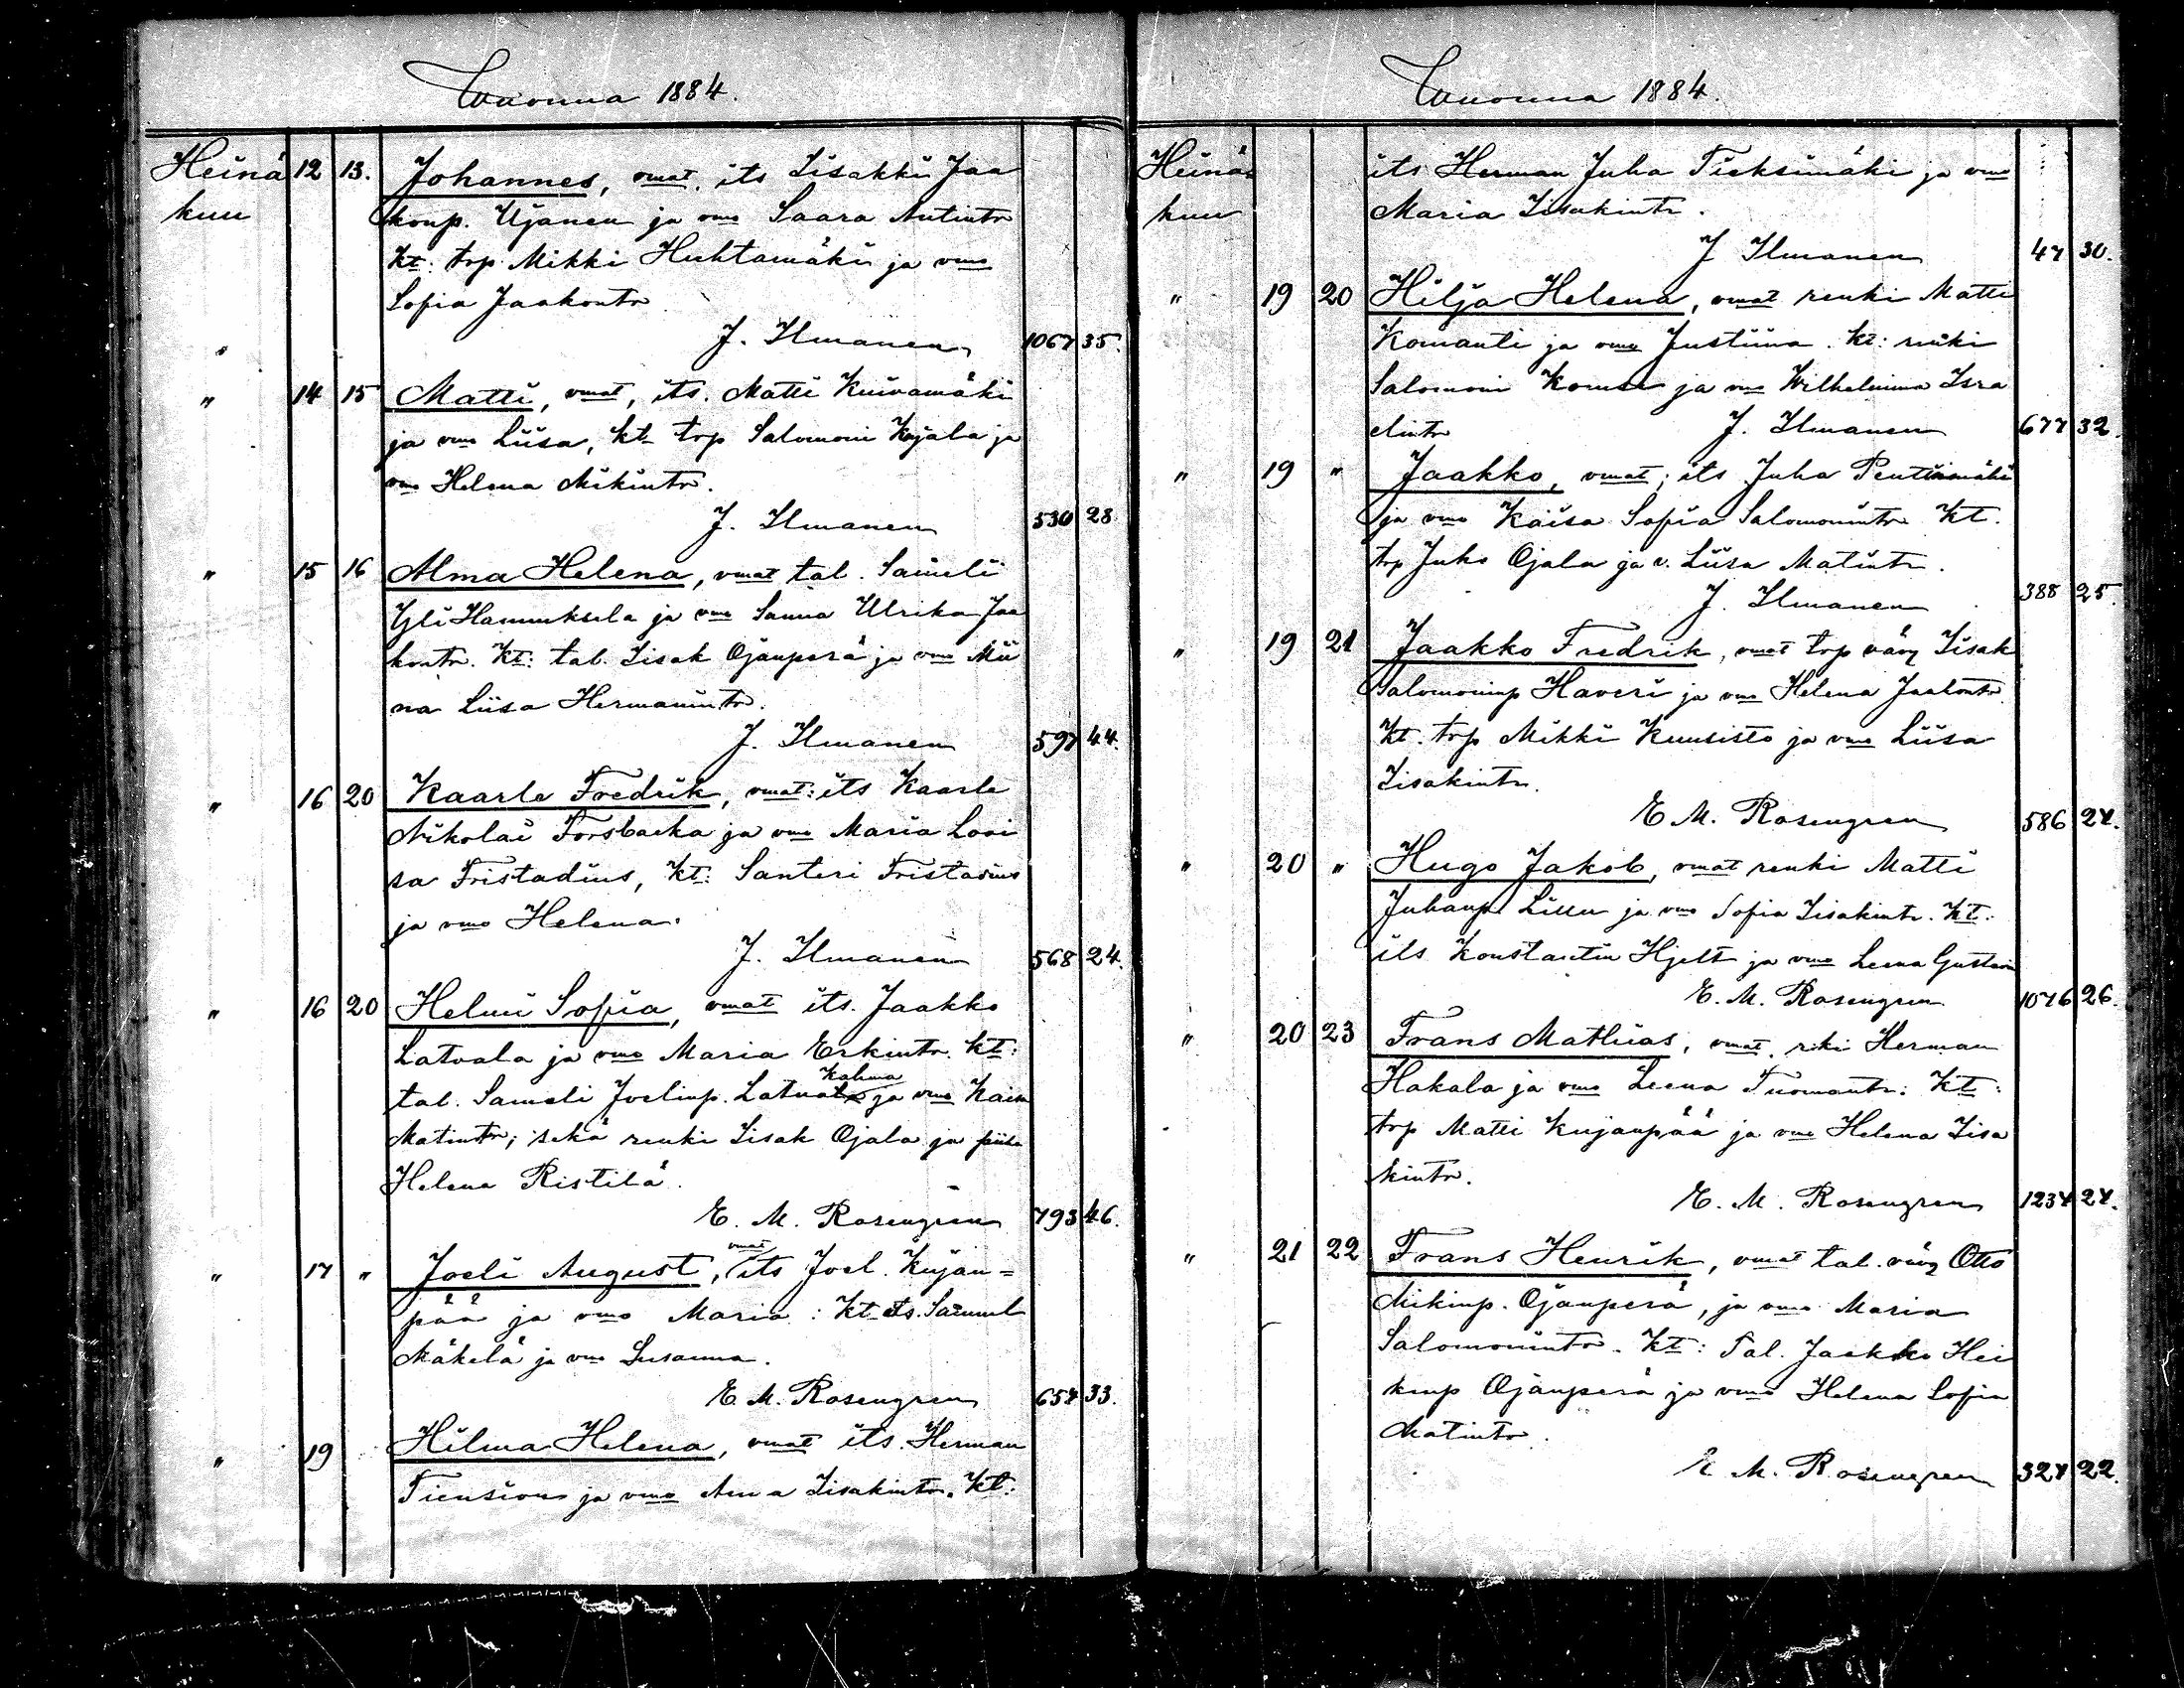 Vuonna 1884.
Heinä 12 13. Johannes, vmat. its Iisakki Jaa
kuu konp. Ujanen ja vmo Saara Antintr
Kt: trp Mikki Huhtamäki ja vmo
Sofia Jaakontr
" J. Ilmanen 1067 35.
" 14 15 Matti, vmat, its. Matti Kuivamäki
ja vmo Liisa, kt. trp Salomoni Kujala ja
vmo Helena Mikintr.
J. Ilmanen 530 28.
" 15 16 Alma Helena, vmat tal. Sameli
Yli Hannuksela ja vmo Sanna Ulrika Jaa
kontr. Kt: tal. Iisak Ojanperä ja vmo Mii
na Liisa Hermanintr.
J. Ilmanen 597 44.
" 16 20 Kaarle Fredrik, vmat: its Kaarle
Nikolai Forsbacka ja vmo Maria Lovi
sa Fristadius, Kt: Santeri Fristadius
ja vmo Helena.
J. Ilmanen 568 24.
" 16 20 Helmi Sofia, vmat its. Jaakko
Latvala ja vmo Maria Erkintr. kt:
Kalma
tal. Sameli Joelinp. Latvala ja vmo Kaisa
Matintr; sekä renki Iisak Ojala ja piika
Helena Ristilä.
E. M. Rosengren 793 46.
vmat
" 17 " Joeli August, its Joel. Kujan=
pää ja vmo Maria: Kt its. Samuel
Mäkelä ja vmo Susanna.
E. M. Rosengren 657 33.
" 19 Hilma Helena, vmat its. Herman
Tiensivu ja vmo Anna Iisakintr. Kt:
Vuonna 1884.
Heinä= its Herman Juha Tieksimäki ja vmo
kuu Maria Iisakintr.
J Ilmanen 47 30.
" 19 20 Hilja Helena, vmat renki Matti
Komanti ja vmo Justiina. Kt: renki
Salomoni ja vmo Wilhelmina Isra
elintr J. Ilmanen 677 32.
" 19 " Jaakko, vmat; its Juha Penttinmäki
ja vmo Kaisa Sofia Salomonintr Kt.
trp Juho Ojala ja v. Liisa Matintr.
J. Ilmanen 388 25.
" 19 21 Jaakko Fredrik, vmat trp vävy Iisak
Salomoninp Haveri ja vmo Helena Jaakontr
Kt. trp Mikki Kuusisto ja vmo Liisa
Iisakintr.
E M. Rosengren 586 27.
" 20 " Hugo Jakob, vmat renki Matti
Juhanp. ja vmo Sofia Iisakintr. Kt.
its Konstantin Hjelt ja vmo Leena Gustavin
E. M. Rosengren 1076 26.
" 20 23 Frans Mathias, vmat. rki Herman
Hakala ja vmo Leena Tuomantr: Kt:
trp Matti Kujanpää ja vmo Helena Iisa
kintr.
E. M. Rosengren 1237 27.
" 21 22 Frans Henrik, vmat tal. vävy Otto
Mikinp. Ojanperä, ja vmo Maria
Salomonintr. Kt: Tal. Jaakko Hei
kinp Ojanperä ja vmo Helena Sofia
Matintr.
E M. Rosengren 327 22.